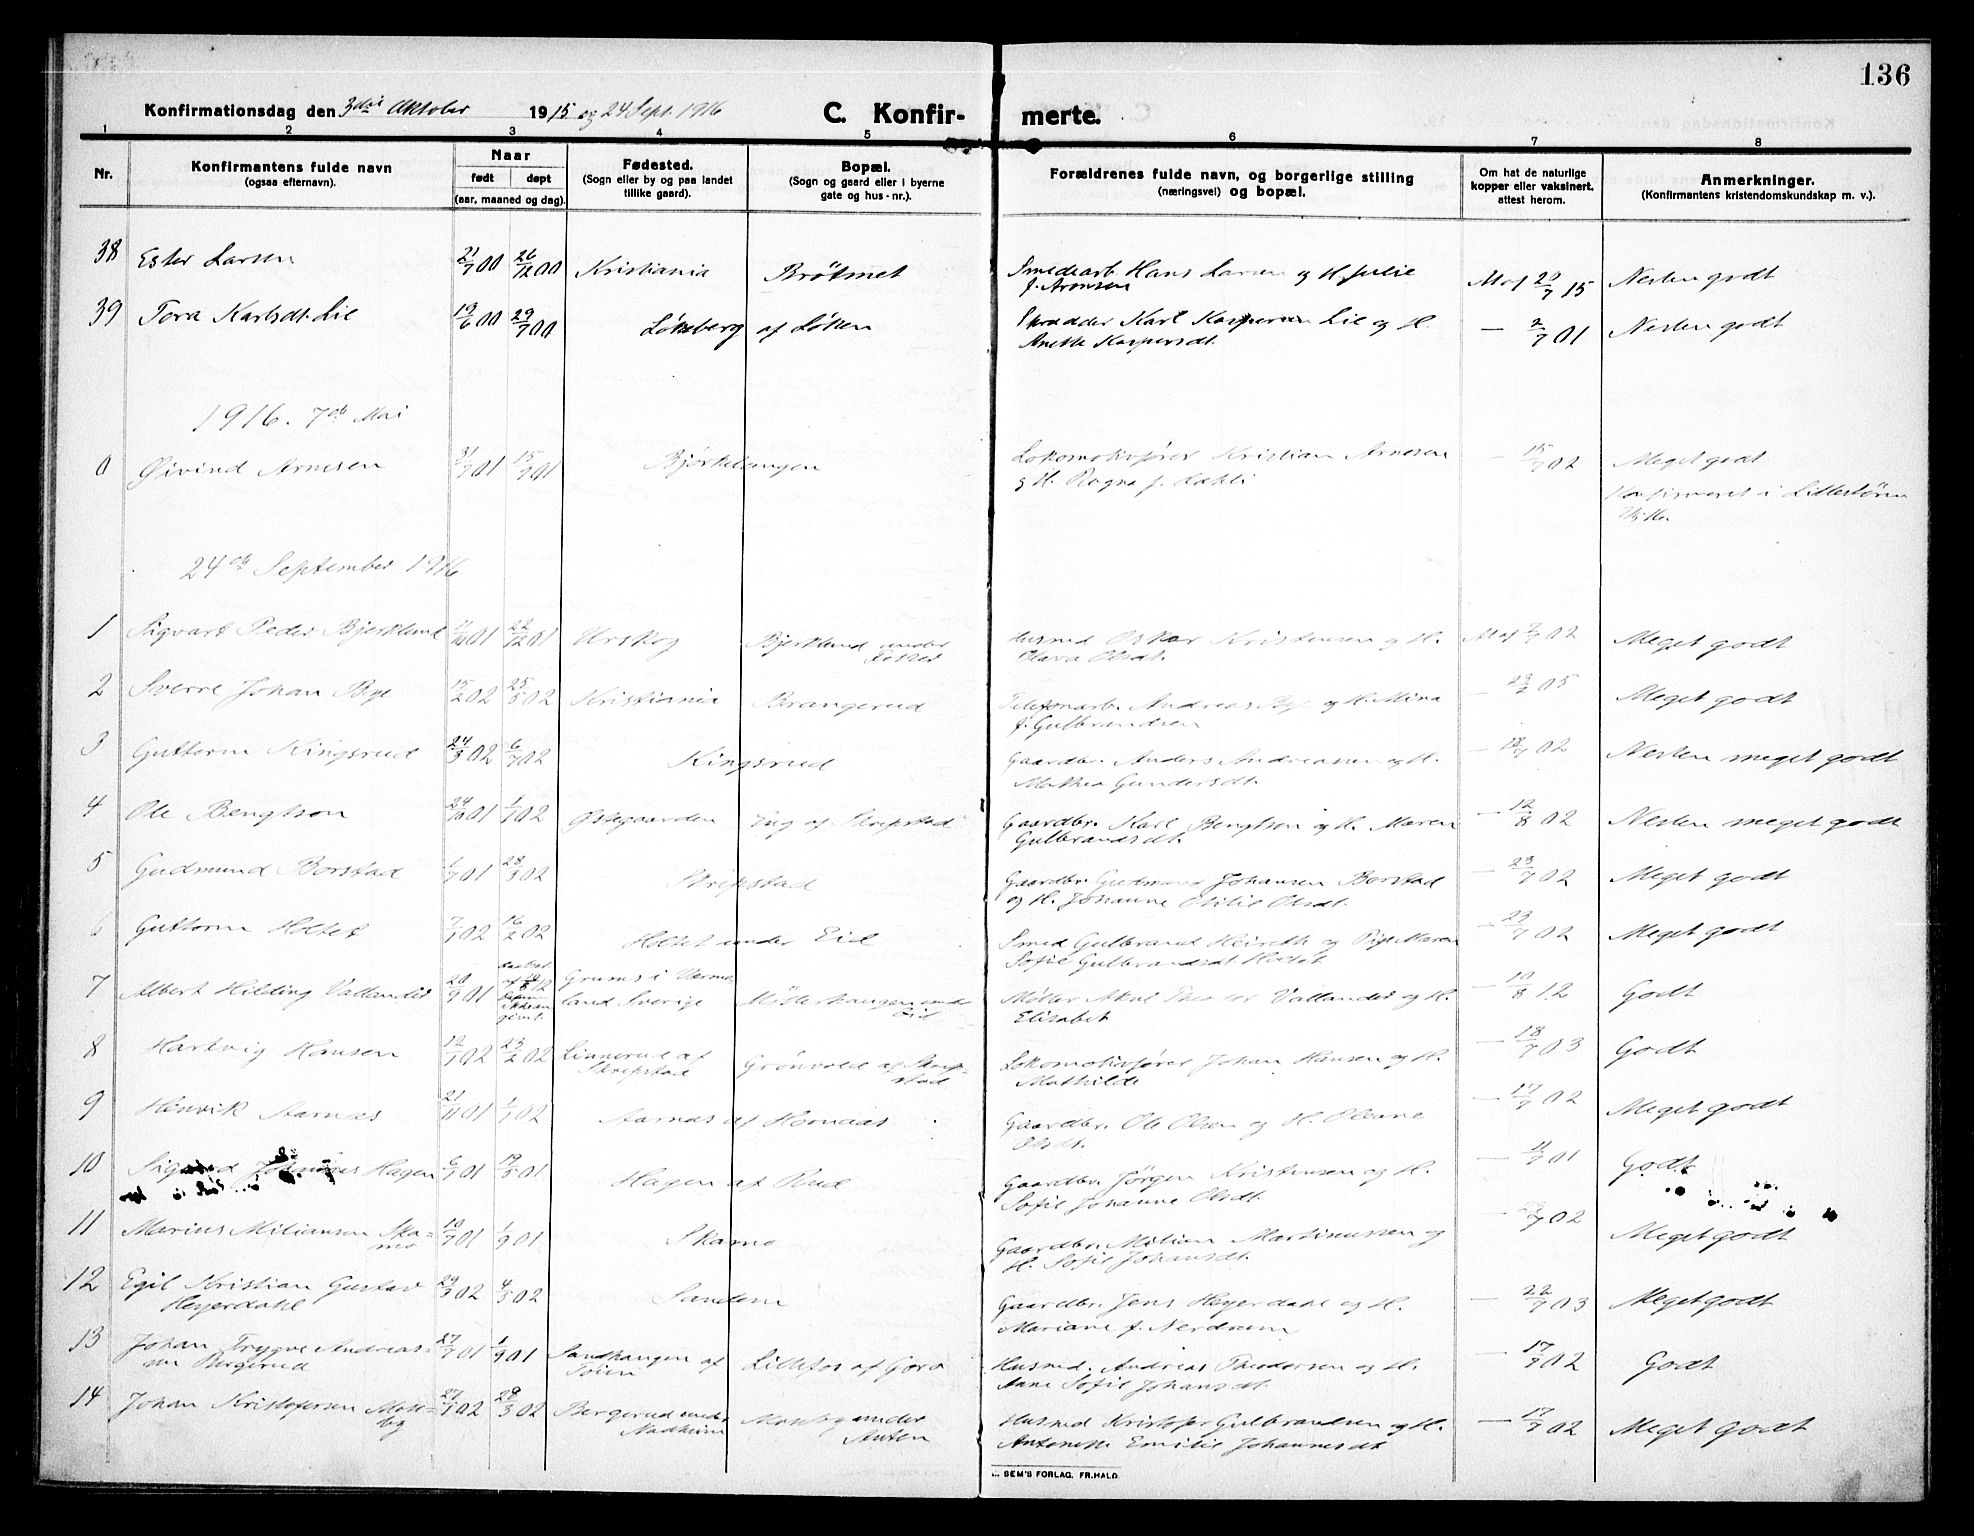 136
Konfirmationsdag den 3die Oktober 1915 og 24 Sept. 1916
C. Konfir- merte.
1 2 3 4 5 6 7 8
Nr.
Konfirmantens fulde navn
(ogsaa efternavn).
Naar
født døpt
(aar, maaned og dag).
Fødested.
(Sogn eller by og paa landet
tillike gaard).
Bopæl.
(Sogn og gaard eller i byerne
gate og hus-nr.).
Forældrenes fulde navn, og borgerlige stilling
(næringsvei) og bopæl.
Om hat de naturlige
kopper eller vaksinert,
attest herom.
Anmerkninger.
(Konfirmantens kristendomskundskap m. v.).
38 Ester Larsen 21/7 00 26/12 00 Kristiania Bråtmet Smedearb. Hans Larsen og H. Julie Mof 20/7 15 Nesten godt
f. Aronsen
39 Tora Karlsdt. Lie 19/6 00 29/7 00 Løkeberg af Løken Skrædder Karl Kaspersen Lie og H. — 2/7 01 Nesten godt
Anette Kaspersdt.
1916. 7de Mai
0 Øivind Arnesen 31/7 01 15/9 01 Bjørkelangen Lokomotivfører Kristian Arnesen — 15/7 02 Meget godt
og H. Ragna f. Kahli
Konfirmeret i Lillestrøm
24de September 1916
1 Sigvart Peder Bjerklund 11/10 01 22/12 01 Urskog Bjerklund under Husmd Oskar Kristensen og H. Mof 7/7 02 Meget godt
Fosser
Olava Olsdt.
2 Sverre Johan Bye 15/2 02 25/5 02 Kristiania Brangerud Telefonarb. Andreas Bye og H. Mina — 23/2 05 Meget godt
f. Gulbrandsen
3 Guttorm Kingsrud 24/3 02 6/7 02 Kingsrud Gaardbr. Anders Andreassen og H. — 18/7 02 Nesten meget godt
Mathea Gundersdt.
4 Ole Bengtson 24/10 01 1/1 02 Østegaarden Eng af Skripstad Gaardbr. Karl Bengtson og H. Maren — 12/8 02 Nesten meget godt
Gulbrandsdt.
5 Gudmund Borstad 1/7 01 28/3 02 Skripstad Gaardbr. Gudmund Johansen Borstad — 23/7 02 Meget godt
og H. Johanne Otilie Olsdt.
6 Guttorm Holtet 7/1 02 16/2 02 Holtet under Eid Smed Gulbrand Heireth og Pige Maren — 23/7 02 Meget godt
Sofie Gulbrandsdt Holtet
7 Albert Hilding Vallander 20/9 01 Grums i Verme- Møller Axel Theodor Vallander og H. — 10/8 12 Godt
land Sverige Møllerhaugen under
Eid
Elisabet
8 Hartvig Hansen 12/1 02 23/2 02 Linnerud af Grønvold af Skrip- Lokomotivfører Johan Hansen og H. — 18/7 03 Godt
Skripstad stad Mathilde
9 Henrik Aarnes 21/11 01 1/1 02 Aarnes af Homnæs Gaardbr. Ole Olsen og H. Oleane — 17/7 02 Meget godt
Olsdt.
10 Sigurd Johannes Hagen 6/7 01 19/5 01 Hagen af Rud Gaardbr. Jørgen Kristensen og H. — 11/7 01 Godt
Sofie Johanne Olsdt.
11 Marius Miliansen Ska- 10/7 01 1/9 01 Skamo Gaardbr. Milian Martinussen og — 23/7 02 Meget godt
mo
H. Sofie Johansdt.
12 Egil Kristian Gustav 29/3 02 4/5 02 Sandem Gaardbr. Jens Heyerdahl og H. — 22/7 03 Meget godt
Heyerdahl
Mariane f. Nerdrum
13 Johan Trygve Andreas- 27/7 01 1/9 01 Sandhaugen af Lillefos af Gora Husmd. Andreas Theodorsen og H. — 17/7 02 Godt
sen Bergerud Toien Anne Sofie Johansdt.
14 Johan Kristofersen Mos- 27/1 02 29/3 02 Bergerud under Mosby under Husmd Kristofer Gulbrandsen og H. — 17/7 02 Meget godt
by Nadheim Auten Antonette Emilie Johannesdt
SEM'S FORLAG. FR. HALD.